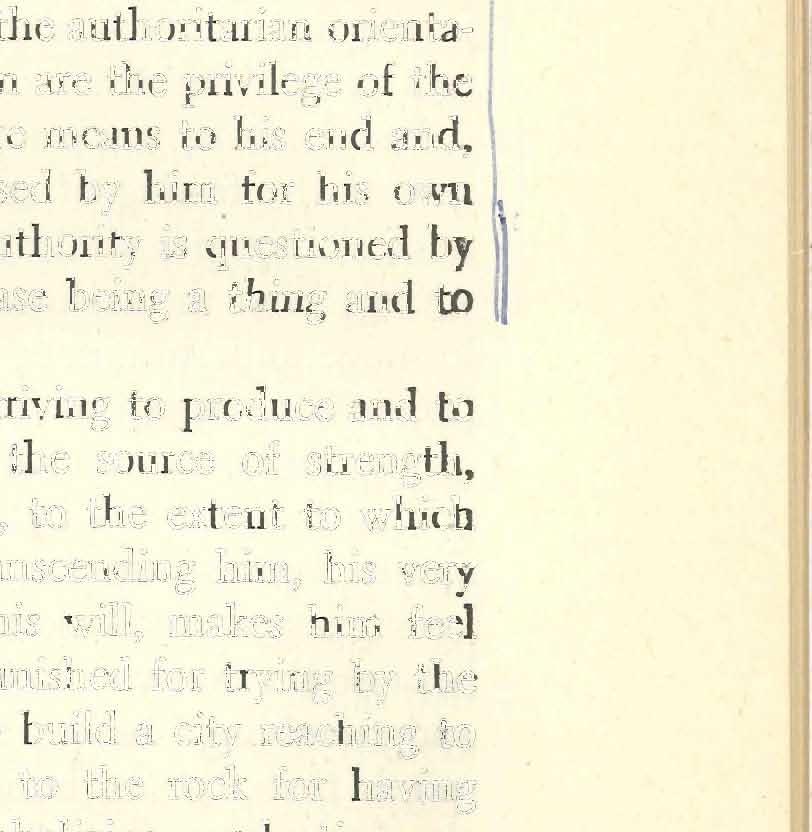 the authoritarian orienta-
n are the privilege of the
means to his end and,
sed by him for his own
uthority is questioned by
ase being a thing and to
riving to produce and to
the source of strength,
, to the extent to which
anscending him, his very
his will, makes him feel
unished for trying by the
build a city reaching to
to the rock for having